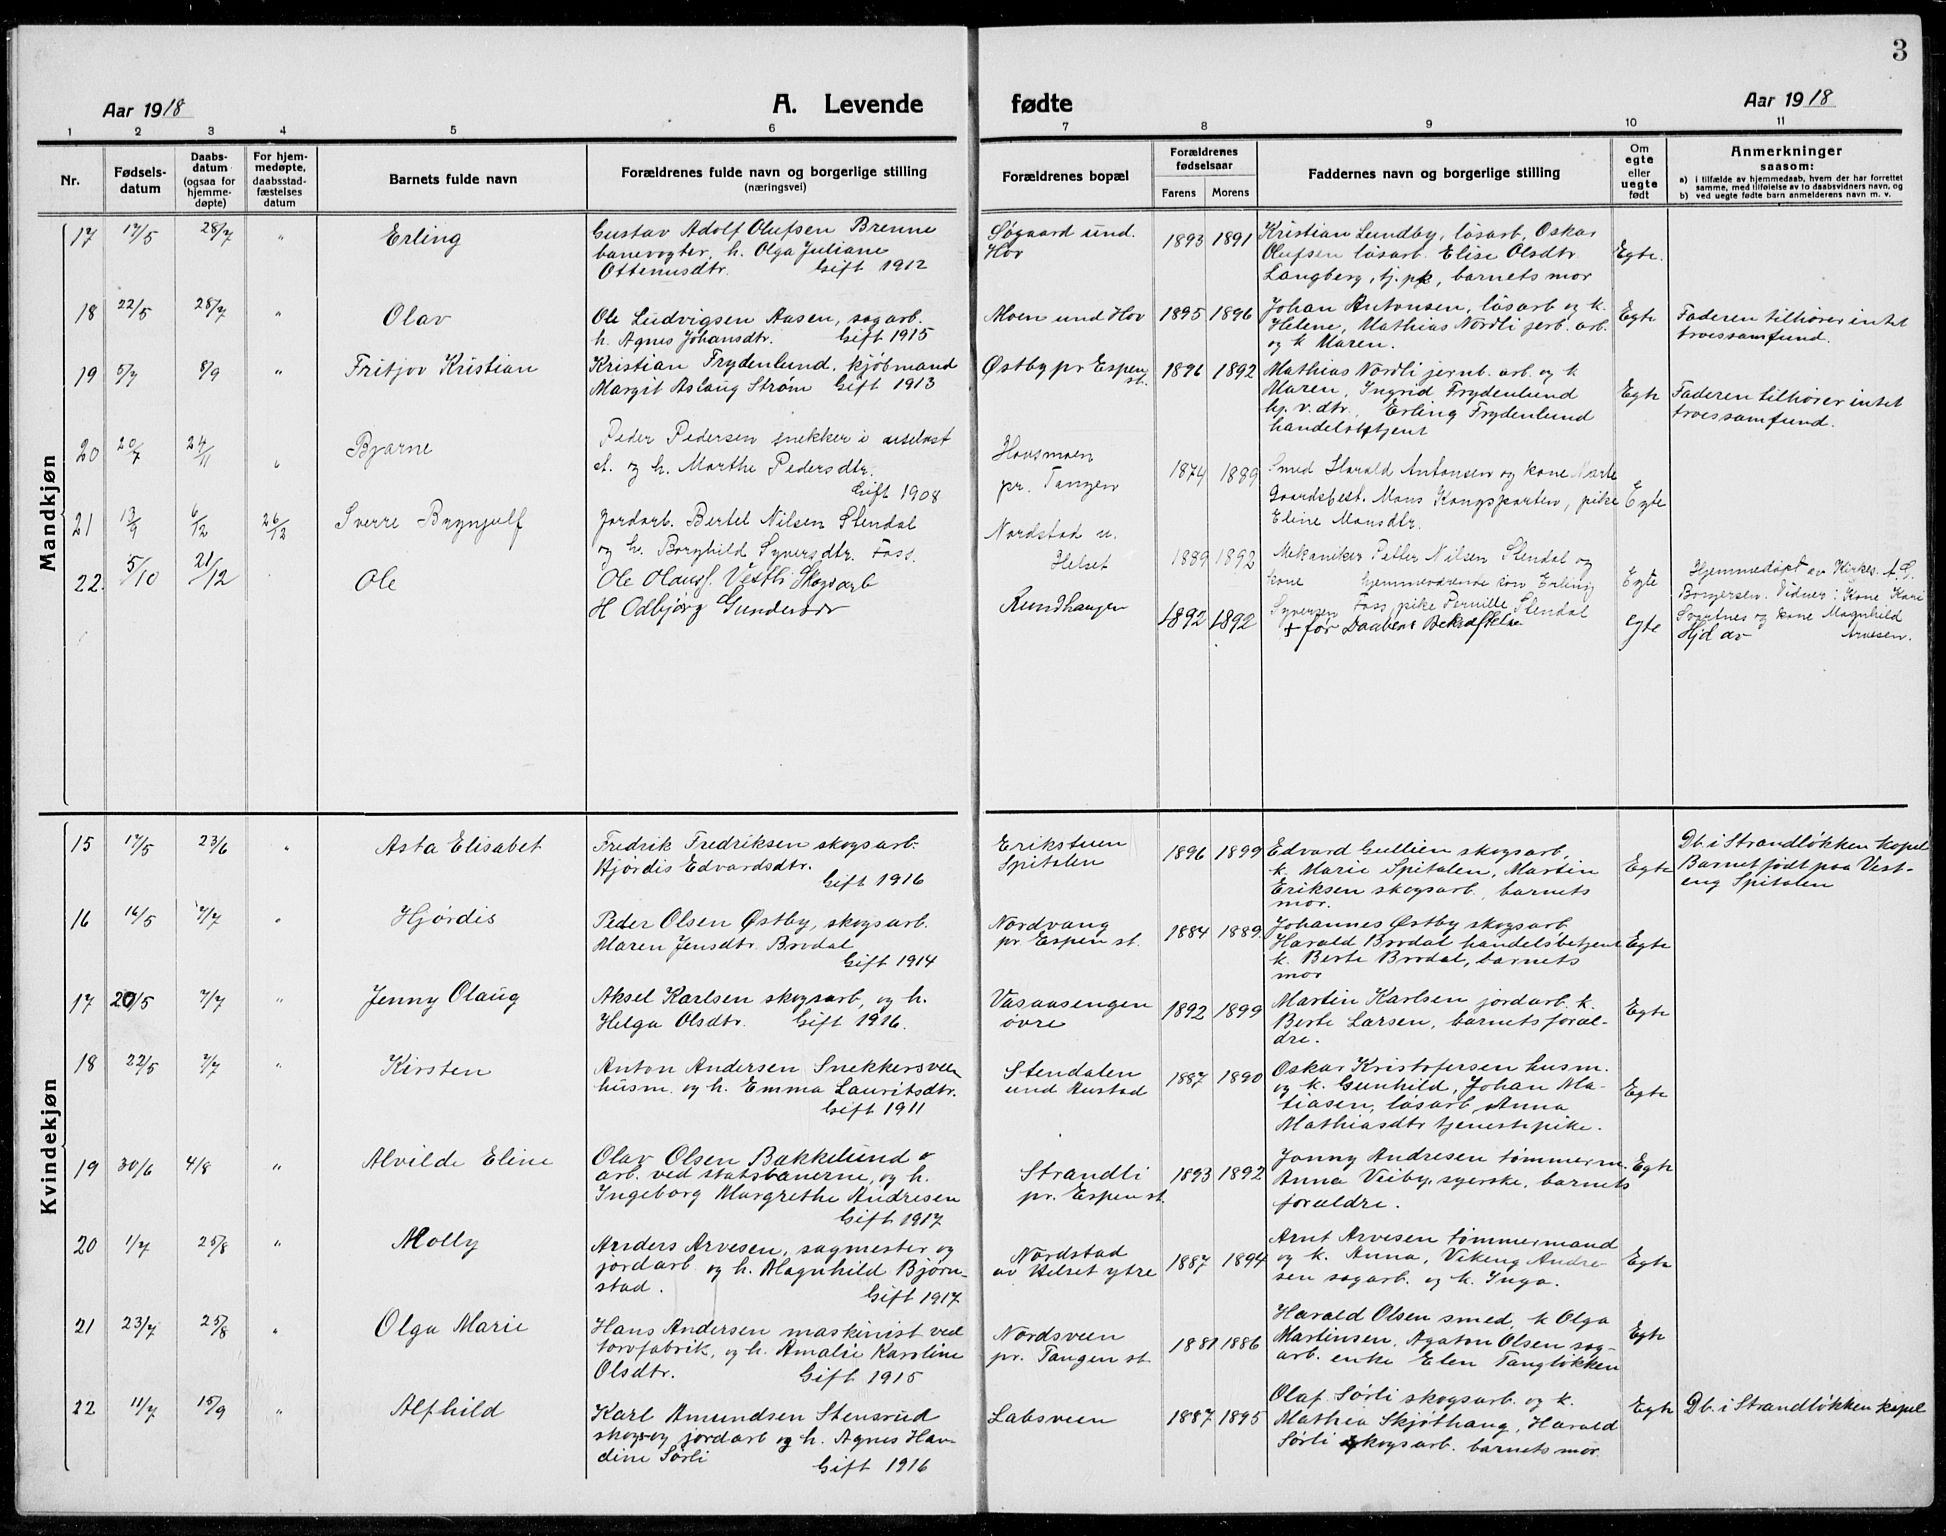 3
Aar 1918
A. Levende
fødte
Aar 1918
1 2 3 4 5 6 7 8 9 10 11
Nr.
Fødsels-
datum
Daabs-
datum
(ogsaa for
hjemme-
døpte)
For hjem-
medøpte,
daabsstad-
fæstelses
datum
Barnets fulde navn
Forældrenes fulde navn og borgerlige stilling
(næringsvei)
Forældrenes bopæl
Forældrenes
fødselsaar
Farens Morens
Faddernes navn og borgerlige stilling
Om
egte
eller
uegte
født
Anmerkninger
saasom:
a) i tilfælde av hjemmedaab, hvem der har forrettet
samme, med tilføielse av to daabsvidners navn, og
b) ved uegte fødte barn anmelderens navn m. v.
Mandkjøn
17 17/5 28/7 " Erling
Gustav Adolf Olufsen Brenne
banevogter, h. Olga Juliane
Ottenusdtr. Gift 1912
Søgaard und.
Hov
1893 1891
Kristian Lundby, løsarb, Oskar
Olufsen løsarb. Elise Olsdtr.
Langberg, tj. pk, barnets mor
Egte.
18 22/5 28/7 " Olav
Ole Ludvigsen Aasen, sagarb.
h. Agnes Johansdtr. Gift 1915
Moen und Hov
1895 1896
Johan Antonsen, løsarb og k.
Helene, Mathias Nordli jerb. arb.
og k Maren.
Egte
Faderen tilhører intet
troessamfund.
19 5/7 8/9 " Fritjov Kristian
Kristian Frydenlund, kjøbmand
Margit Aslaug Strøm Gift 1913
Østby pr Espen
st.
1896 1892
Mathias Nordli jernb. arb. og k
Maren, Ingrid Frydenlund
hj. v. dtr. Erling Frydenlund
handelsbetjent
Egte
Faderen tilhører intet
troessamfund.
20 20/7 24/11 " Bjarne
Peder Pedersen snekker i
og h. Marthe Pedersdtr.
Gift 1908
Hovsmoen
pr. Tangen
1874 1889
Smed Harald Antonsen og kone Marte
Gaardsbest. Mons Kongsparten, pike
Eline Monsdtr.
Egte
21 13/9 6/12 26/12 Sverre Brynjulf
Jordarb. Bertel Nilsen Stendal
og h. Borghild Syversdtr. Foss.
Nordstad u.
Helset
1889 1892
Mekaniker Petter Nilsen Stendal og
kone hjemmeværende søn Erling
Syversen Foss, pike Pernille Stendal
Egte
Hjemmedøpt av Kirkes. A. G.
Borgersen. Vidner: Kone Kari
Svartnes og kone Magnhild
Arvesen.
22. 5/10 21/12 Ole
Ole Olaus. Vestli Skogsarb
H Odbjørg Gundersdr
Rundhaugen
1892 1892
+ før Daabens Bekræftelse
egte
Hjd av
Kvindekjøn
15 17/5 23/6 " Asta Elisabet
Fredrik Fredriksen skogsarb.
Hjørdis Edvardsdtr.
Gift 1916
Eriksteen
Spitalen
1896 1899
Edvard Gullien skogsarb,
k. Marie Spitalen, Martin
Eriksen skogsarb, barnets
mor.
Egte
Db. i Strandløkken kapel
Barnet født paa Vest-
eng Spitalen
16 16/5 7/7 " Hjørdis
Peder Olsen Østby, skogsarb.
Maren Jensdtr. Brodal
Gift 1914
Nordvang
pr. Espen st.
1884 1889.
Johannes Østby skogsarb
Harald Brodal handelsbetjent
k. Berte Brodal, barnets
mor
Egte
17 20/5 7/7 " Jenny Olaug
Aksel Karlsen skogsarb, og h.
Helga Olsdtr. Gift 1916.
Vasaasengen
øvre
1892 1899
Martin Karlsen jordarb. k.
Berte Larsen, barnets foræl-
dre.
Egte
18 22/5 7/7 " Kirsten
Anton Andersen Snekkersveen
husm. og h. Emma Lauritsdtr.
Gift 1911
Stendalen
und Rustad
1887 1890
Oskar Kristofersen husm.
og k. Gunhild, Johan Ma-
tiasen, løsarb, Anna
Mathiasdtr tjenestepike.
Egte
19 30/6 4/8 " Alvilde Eline
Olav Olsen Bakkelund
arb. ved statsbanerne, og h.
Ingeborg Margrethe Andresen
Gift 1917
Strandli
pr. Espen st.
1893 1892
Jonny Andresen tømmerm.
Anna Veiby, syerske, barnets
forældre.
Egte
20 1/7 25/8 " Molly
Anders Arvesen, sagmester og
jordarb og h. Magnhild Bjørn-
stad. Gift 1917
Nordstad
av Helset ytre
1887 1894
Arnt Arvesen tømmermand
og k. Anna, Viking Andre-
sen sagarb. og k. Inga.
Egte
21 23/7 25/8 " Olga Marie
Hans Andersen maskinist ved
torvfabrik, og h. Amalie Karoline
Olsdtr. Gift 1915
Nordsveen
pr. Tangen st.
1881 1886
Harald Olsen smed, k Olga
Martinsen, Agaton Olsen sag-
arb. enke Elen Tangløkken
Egte
22 11/7 15/9 " Alfhild
Karl Amundsen Stensrud
skogs-og jordarb og h. Agnes Hav-
dine Sørli Gift 1916
Labsveen
1887 1895
Olaf Sørli skogsarb. og k.
Mathea Skjøthaug, Harald
Sørli skogsarb. barnets mor
Egte
Db. i Strandløkken kapel